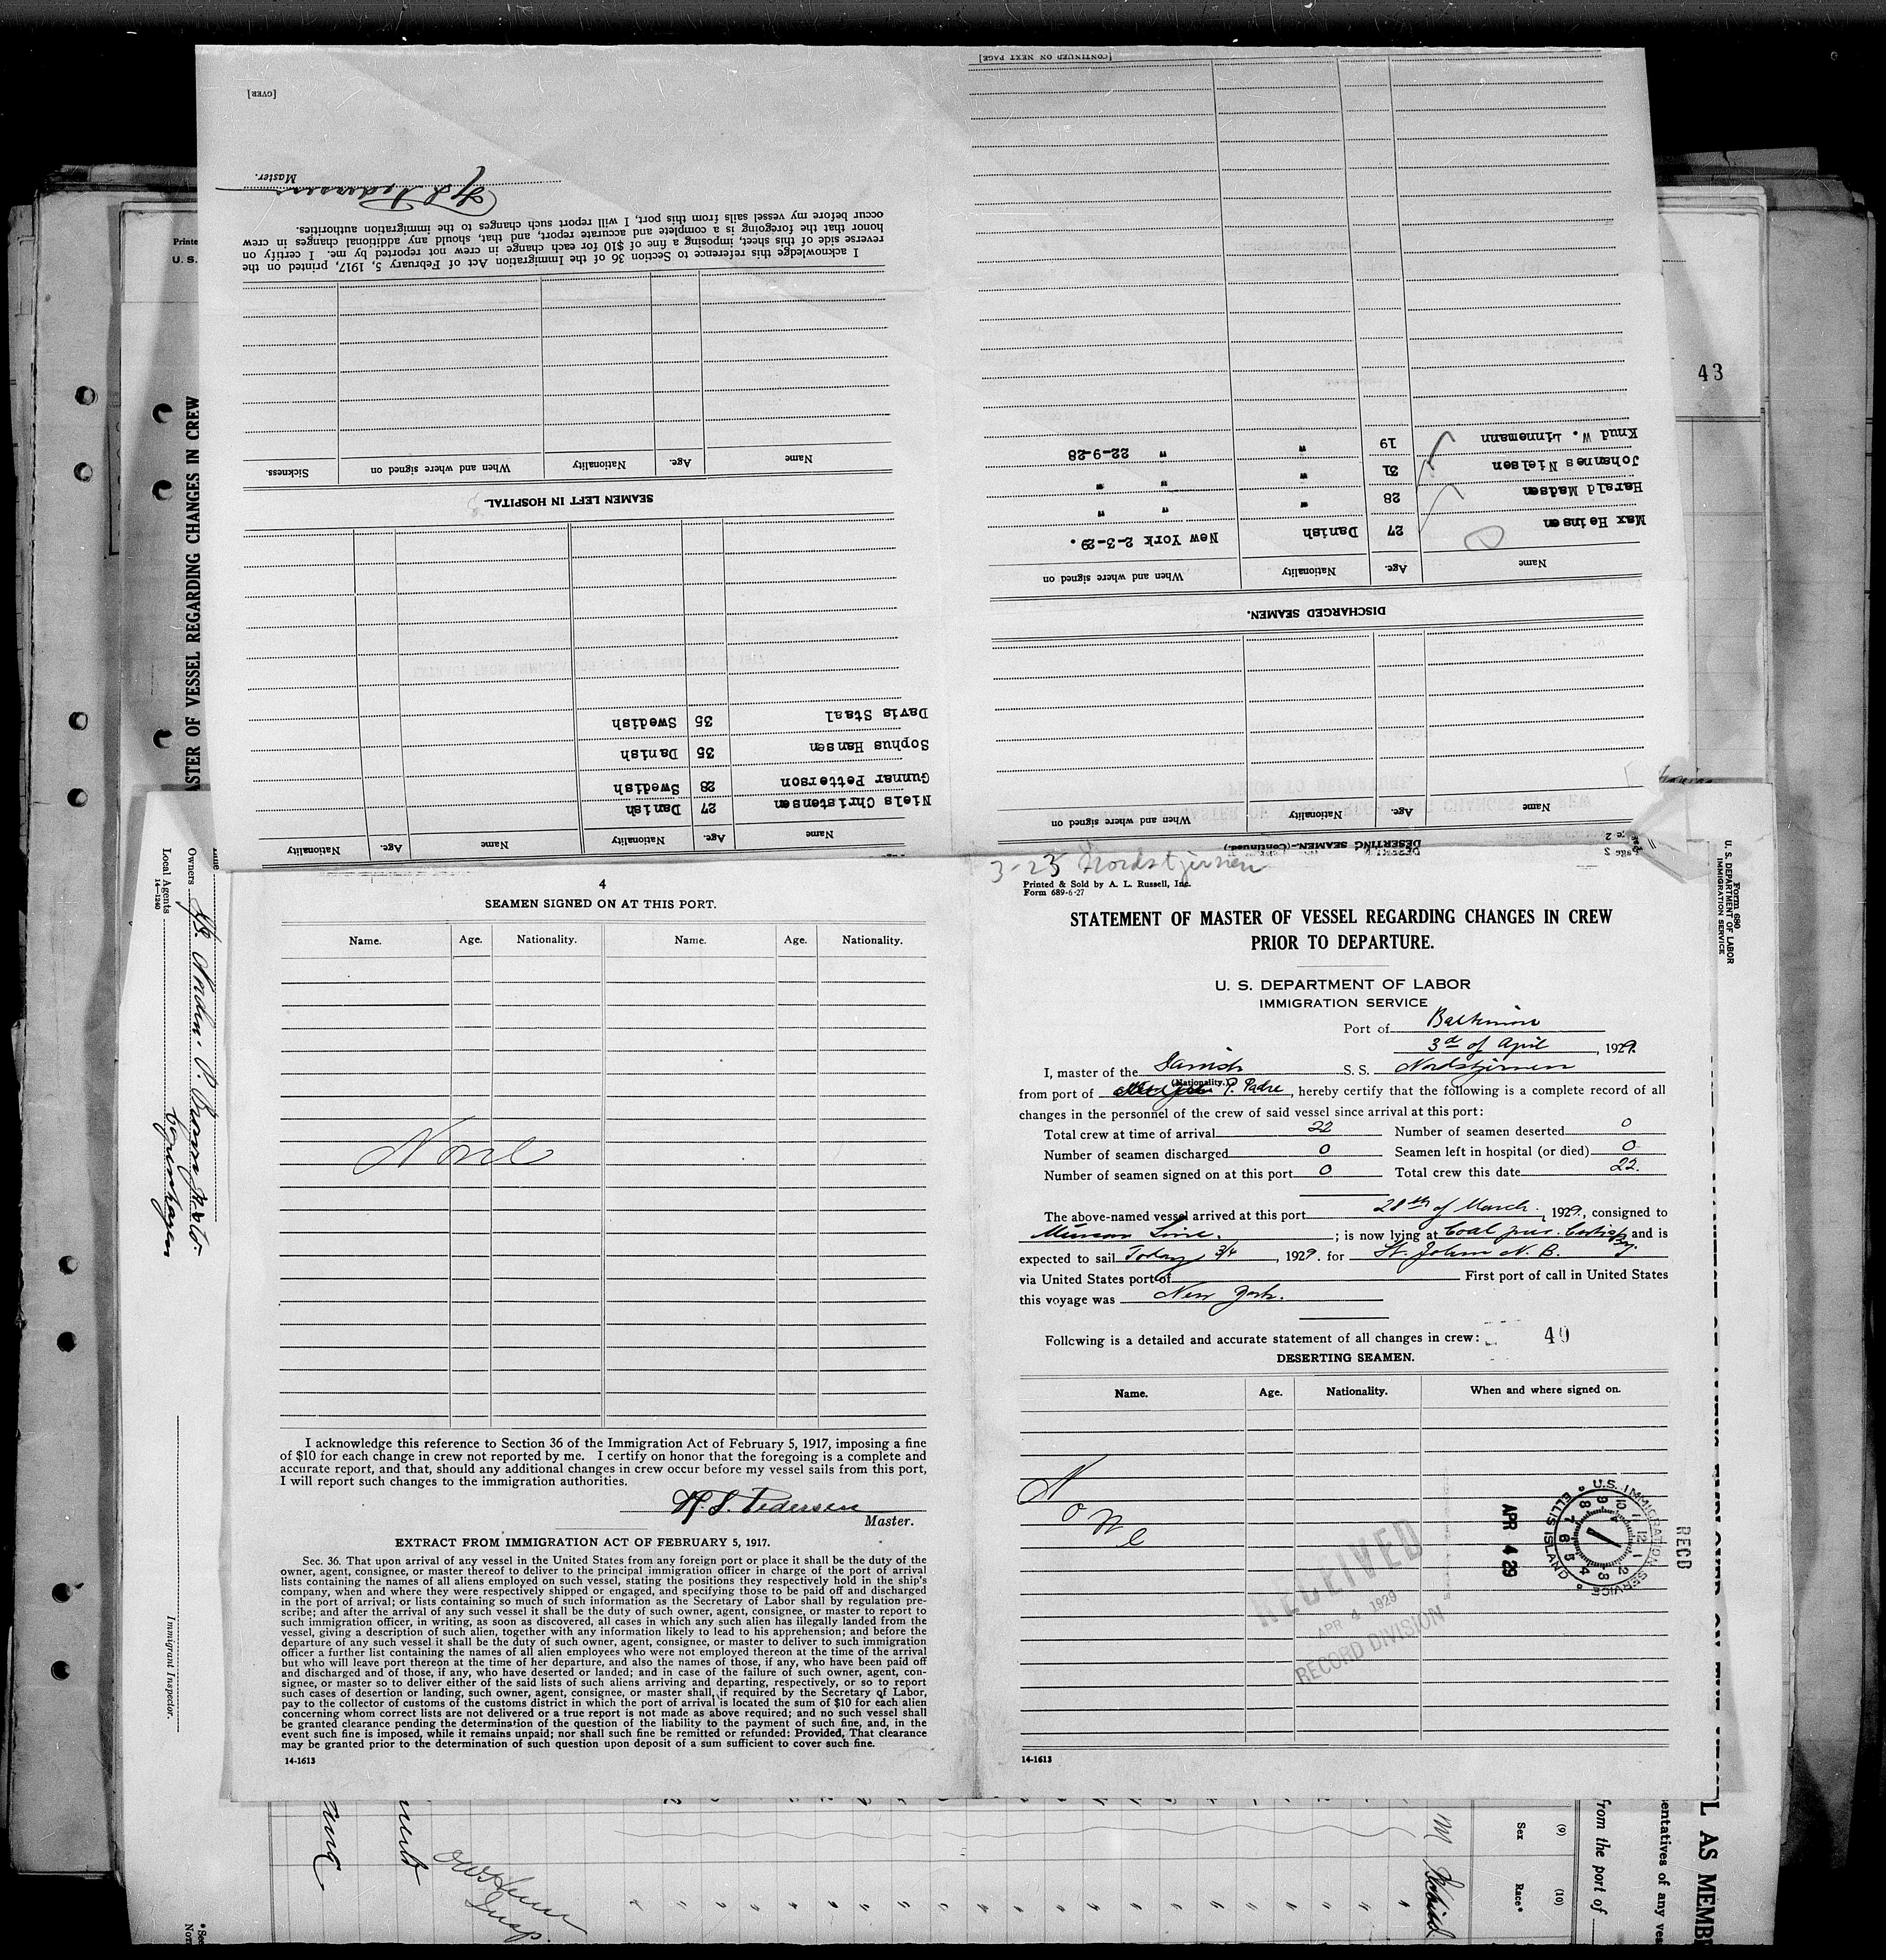 [CONTINUED ON NEXT PAGE]
Knud W. Linnemann 19 " " 22-9-28
Johannes Nielsen 31 " " "
Harald Madsen 28 " " "
Max Heinsen 27 Danish New York 2-3-29.
Name Age. Nationality When and where signed on
DISCHARGED SEAMEN.
Name Age. Nationality When and where signed on
DESERTING SEAMEN.—(Continued.)
Page 2
[OVER]
Master.
I acknowledge this reference to Section 36 of the Immigration Act of February 5, 1917, printed on the
reverse side of this sheet, imposing a fine of $10 for each change in crew not reported by me. I certify on
honor that the foregoing is a complete and accurate report, and that, should any additional changes in crew
occur before my vessel sails from this port, I will report such changes to the immigration authorities.
Name Age. Nationality When and where signed on Sickness.
SEAMEN LEFT IN HOSPITAL.
Davis Staal 35 Swedish
Sophus Hansen 35 Danish
Gunnar Petterson 28 Swedish
Niels Christensen 27 Danish
Name Age. Nationality Name Age. Nationality
43
Printe
U. S.
ASTER OF VESSEL REGARDING CHANGES IN CREW
Owners
Local Agents
14—1240
Copenhagen
Immigrant Inspector.
Form 680
U. S. DEPARTMENT OF LABOR
IMMIGRATION SERVICE
4
SEAMEN SIGNED ON AT THIS PORT.
Name. Age. Nationality. Name. Age. Nationality.
None
I acknowledge this reference to Section 36 of the Immigration Act of February 5, 1917, imposing a fine
of $10 for each change in crew not reported by me. I certify on honor that the foregoing is a complete and
accurate report, and that, should any additional changes in crew occur before my vessel sails from this port,
I will report such changes to the immigration authorities.
Pedersen
Master.
EXTRACT FROM IMMIGRATION ACT OF FEBRUARY 5, 1917.
Sec. 36. That upon arrival of any vessel in the United States from any foreign port or place it shall be the duty of the
owner, agent, consignee, or master thereof to deliver to the principal immigration officer in charge of the port of arrival
lists containing the names of all aliens employed on such vessel, stating the positions they respectively hold in the ship's
company, when and where they were respectively shipped or engaged, and specifying those to be paid off and discharged
in the port of arrival; or lists containing so much of such information as the Secretary of Labor shall by regulation pre-
scribe; and after the arrival of any such vessel it shall be the duty of such owner, agent, consignee, or master to report to
such immigration officer, in writing, as soon as discovered, all cases in which any such alien has illegally landed from the
vessel, giving a description of such alien, together with any information likely to lead to his apprehension; and before the
departure of any such vessel it shall be the duty of such owner, agent, consignee, or master to deliver to such immigration
officer a further list containing the names of all alien employees who were not employed thereon at the time of the arrival
but who will leave port thereon at the time of her departure, and also the names of those, if any, who have been paid off
and discharged and of those, if any, who have deserted or landed; and in case of the failure of such owner, agent, con-
signee, or master so to deliver either of the said lists of such aliens arriving and departing, respectively, or so to report
such cases of desertion or landing, such owner, agent, consignee, or master shall, if required by the Secretary of Labor,
pay to the collector of customs of the customs district in which the port of arrival is located the sum of $10 for each alien
concerning whom correct lists are not delivered or a true report is not made as above required; and no such vessel shall
be granted clearance pending the determination of the question of the liability to the payment of such fine, and, in the
event such fine is imposed, while it remains unpaid; nor shall such fine be remitted or refunded: Provided, That clearance
may be granted prior to the determination of such question upon deposit of a sum sufficient to cover such fine.
14-1613
3-23 Nordstjernen
Printed & Sold by A. L. Russell, Inc.
Form 689-6-27
STATEMENT OF MASTER OF VESSEL REGARDING CHANGES IN CREW
PRIOR TO DEPARTURE.
U. S. DEPARTMENT OF LABOR
IMMIGRATION SERVICE
Port of Baltimore
3d of April, 1929.
I, master of the Danish S. S. Nordstjernen
(Nationality.)
from port of P. Padre, hereby certify that the following is a complete record of all
changes in the personnel of the crew of said vessel since arrival at this port:
Total crew at time of arrival 22 Number of seamen deserted 0
Number of seamen discharged 0 Seamen left in hospital (or died) 0
Number of seamen signed on at this port 0 Total crew this date 22.
The above-named vessel arrived at this port 28th of March, 1929, consigned to
Munson Line.; is now lying at Coal pier and is
expected to sail Today 3/4, 1929. for St. John N. B.
via United States port of First port of call in United States
this voyage was New York.
Following is a detailed and accurate statement of all changes in crew: 40
DESERTING SEAMEN.
Name. Age. Nationality. When and where signed on.
None
RECEIVED
APR 4 1929
RECORD DIVISION
APR 4 29
U.S. IMMIGRATION SERVICE
ELLIS ISLAND
RECD
14-1613
M
Sex
(9)
Race*
(10)
from the port of
sentatives of any ves
L AS MEMBE